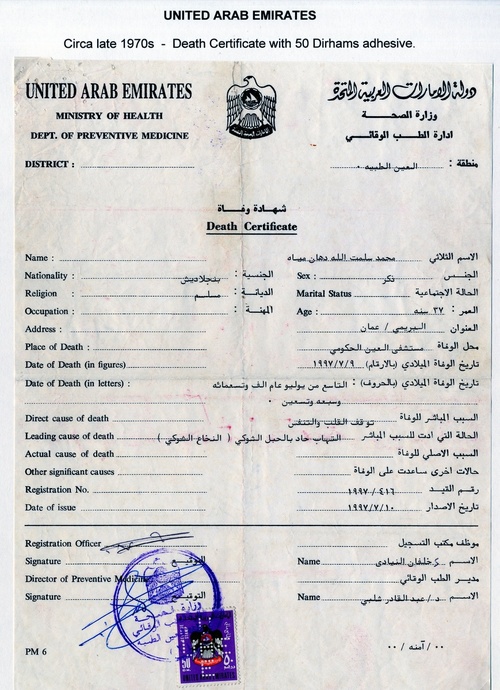 UNITED ARAB EMIRATES
Circa late 1970s - Death Certificate with 50 Dirhams adhesive.
UNITED ARAB EMIRATES دولة الامارات العربية المتحدة
MINISTRY OF HEALTH وزارة الصحة
DEPT. OF PREVENTIVE MEDICINE ادارة الطب الوقائي
DISTRICT : العين الطبيه ٠ منطقة :
شهادة وفاة
Death Certificate
Name : محمد سلمت الله دهان مياه الاسم الثلاثي
Nationality : بنجلاديش الجنسية : Sex : ذكر الجنس
Religion مسلم الديانة : Marital Status الحالة الاجتماعية
Occupation : المهنة : Age : ٣٧ سنه العمر :
Address : البريمي / عمان العنوان
Place of Death : مستشفى العين الحكومي محل الوفاة
Date of Death (in figures) ١٩٩٧/٧/٩ تاريخ الوفاة الميلادي (بالارقام)
Date of Death (in letters) : التاسع من يوليو عام الف وتسعمائه تاريخ الوفاة الميلادي (بالحروف) :
وسبعه وتسعين ٠
Direct cause of death توقف القلب والتنفس السبب المباشر للوفاة
Leading cause of death التهاب حاد بالحبل الشوكي ( النخاع الشوكي ) الحالة التي ادت للسبب المباشر
Actual cause of death السبب الاصلي للوفاة
Other significant causes حالات اخرى ساعدت على الوفاة
Registration No. ٤١٦ / ١٩٩٧ رقم القيد
Date of issue ١٩٩٧/٧/١٠ تاريخ الاصدار
Registration Officer موظف مكتب التسجيل
Signature التوقيع Name خلفان النيادى الاسم
Director of Preventive Medicine مدير الطب الوقائي
Signature التوقيع Name د/عبد القادر شلبي الاسم
وزارة الصحة
PM 6 ٠٠ / آمنه / ٠٠
50 ٥٠